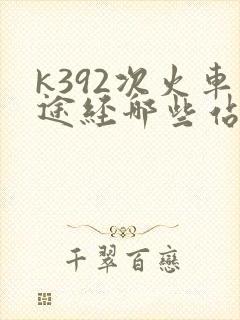 k392次火車
途経哪些佔
千翠百戀